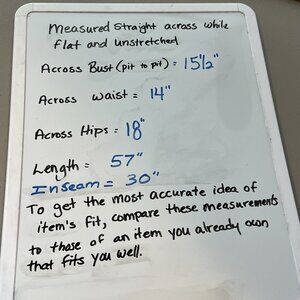 measured straight across while
flat and unstretched
Across Bust (pit to pit) = 15 1/2"
Across waist = 14"
Across Hips = 18"
Length = 57"
Inseam = 30"
To get the most accurate idea of
item's fit, compare these measurements
to those of an item you already own
that fits you well.